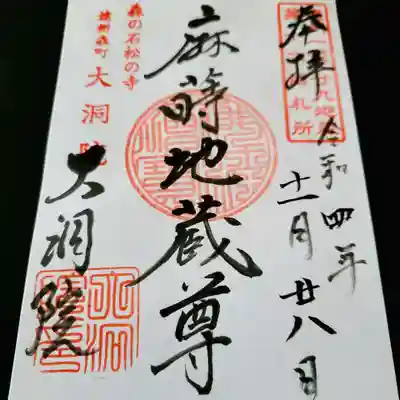 奉拝
令和四年
十一月廿八日
麻蒔地蔵尊
森の石松の寺
遠州森町
大洞院
大洞院